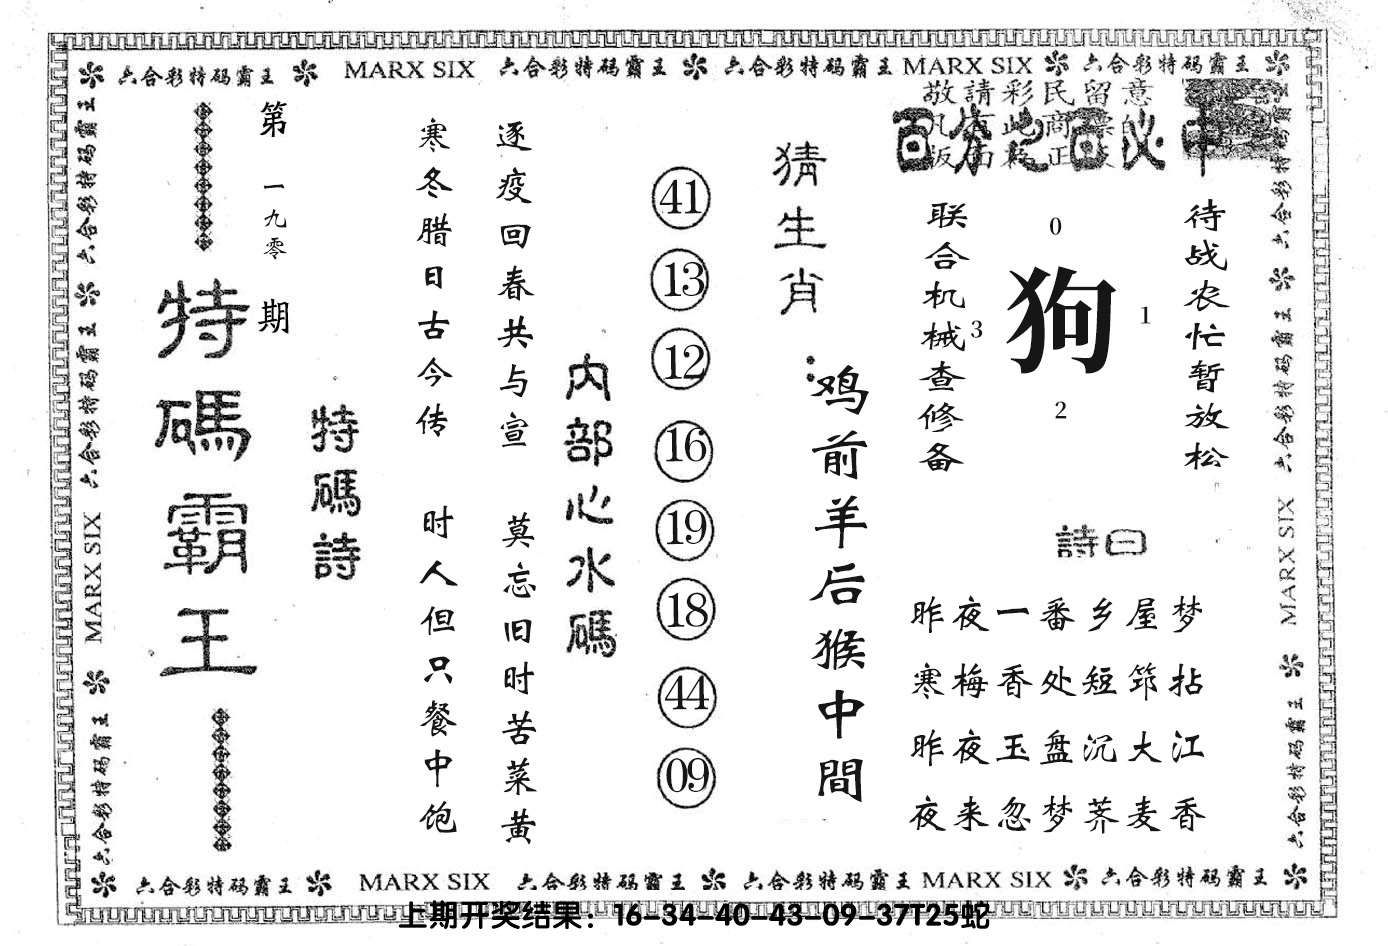 六合彩特码霸王 MARX SIX 六合彩特码霸王 六合彩特码霸王 MARX SIX 六合彩特码霸王
敬請彩民留意
百分之百必中
待战农忙暂放松
狗
0
1
2
3
联合机械查修备
詩曰
昨夜一番乡屋梦
寒梅香处短筇拈
昨夜玉盘沉大江
夜来忽梦荞麦香
猜生肖：
鸡前羊后猴中間
41
13
12
16
19
18
44
09
内部心水碼
逐疫回春共与宣 莫忘旧时苦菜黄
寒冬腊日古今传 时人但只餐中饱
特碼詩
第一九零期
特碼霸王
六合彩特码霸王 六合彩特码霸王 MARX SIX 六合彩特码霸王
六合彩特码霸王 六合彩特码霸王 MARX SIX 六合彩特码霸王
六合彩特码霸王 MARX SIX 六合彩特码霸王 六合彩特码霸王 MARX SIX 六合彩特码霸王
上期开奖结果：16-34-40-43-09-37T25蛇